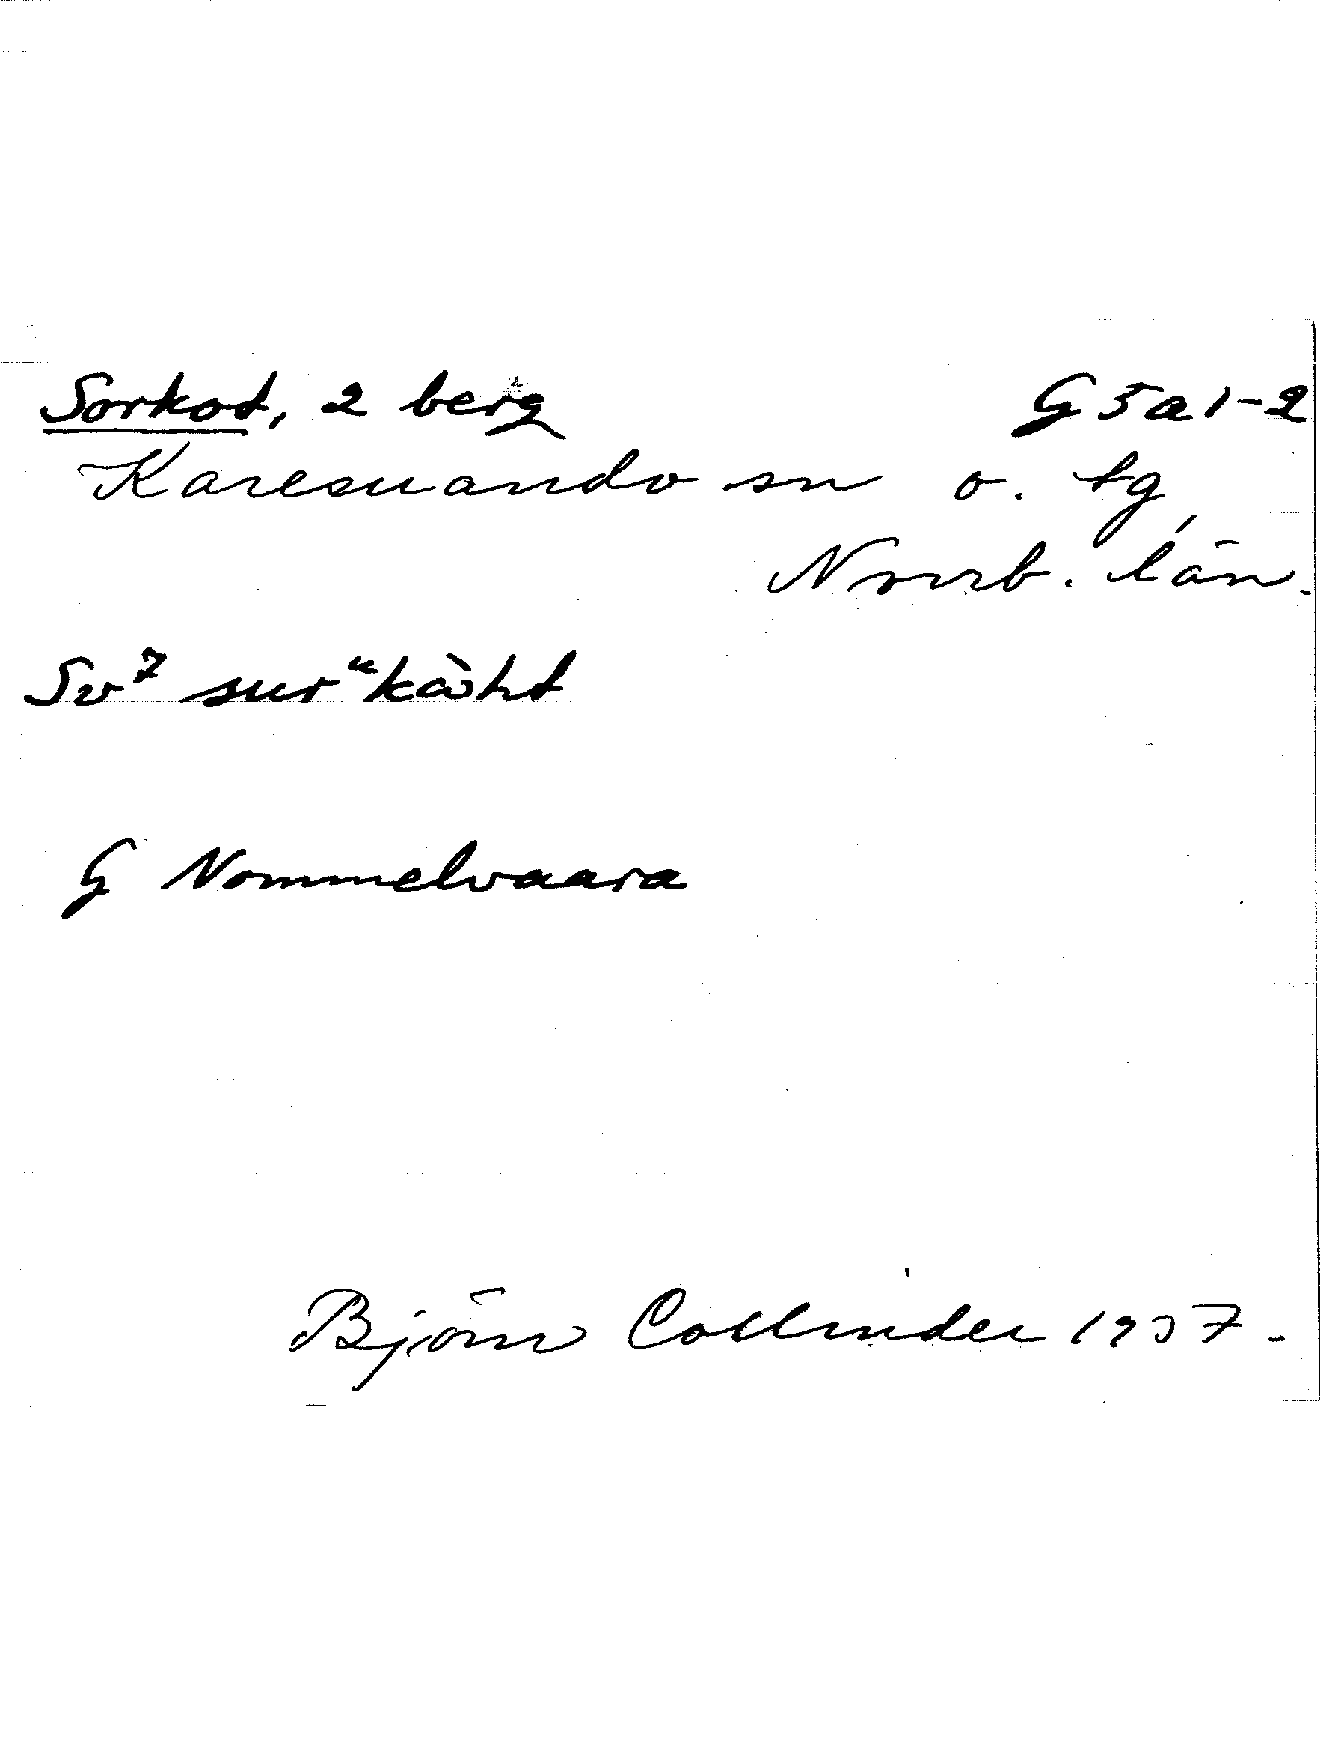 Sorkod, 2 berg G 5 a 1-2
Karesuando sn o. tg,
Norrb. län.
Sv⁷ sur"kàht
G Nommelvaara
Björn Collinder 1937.